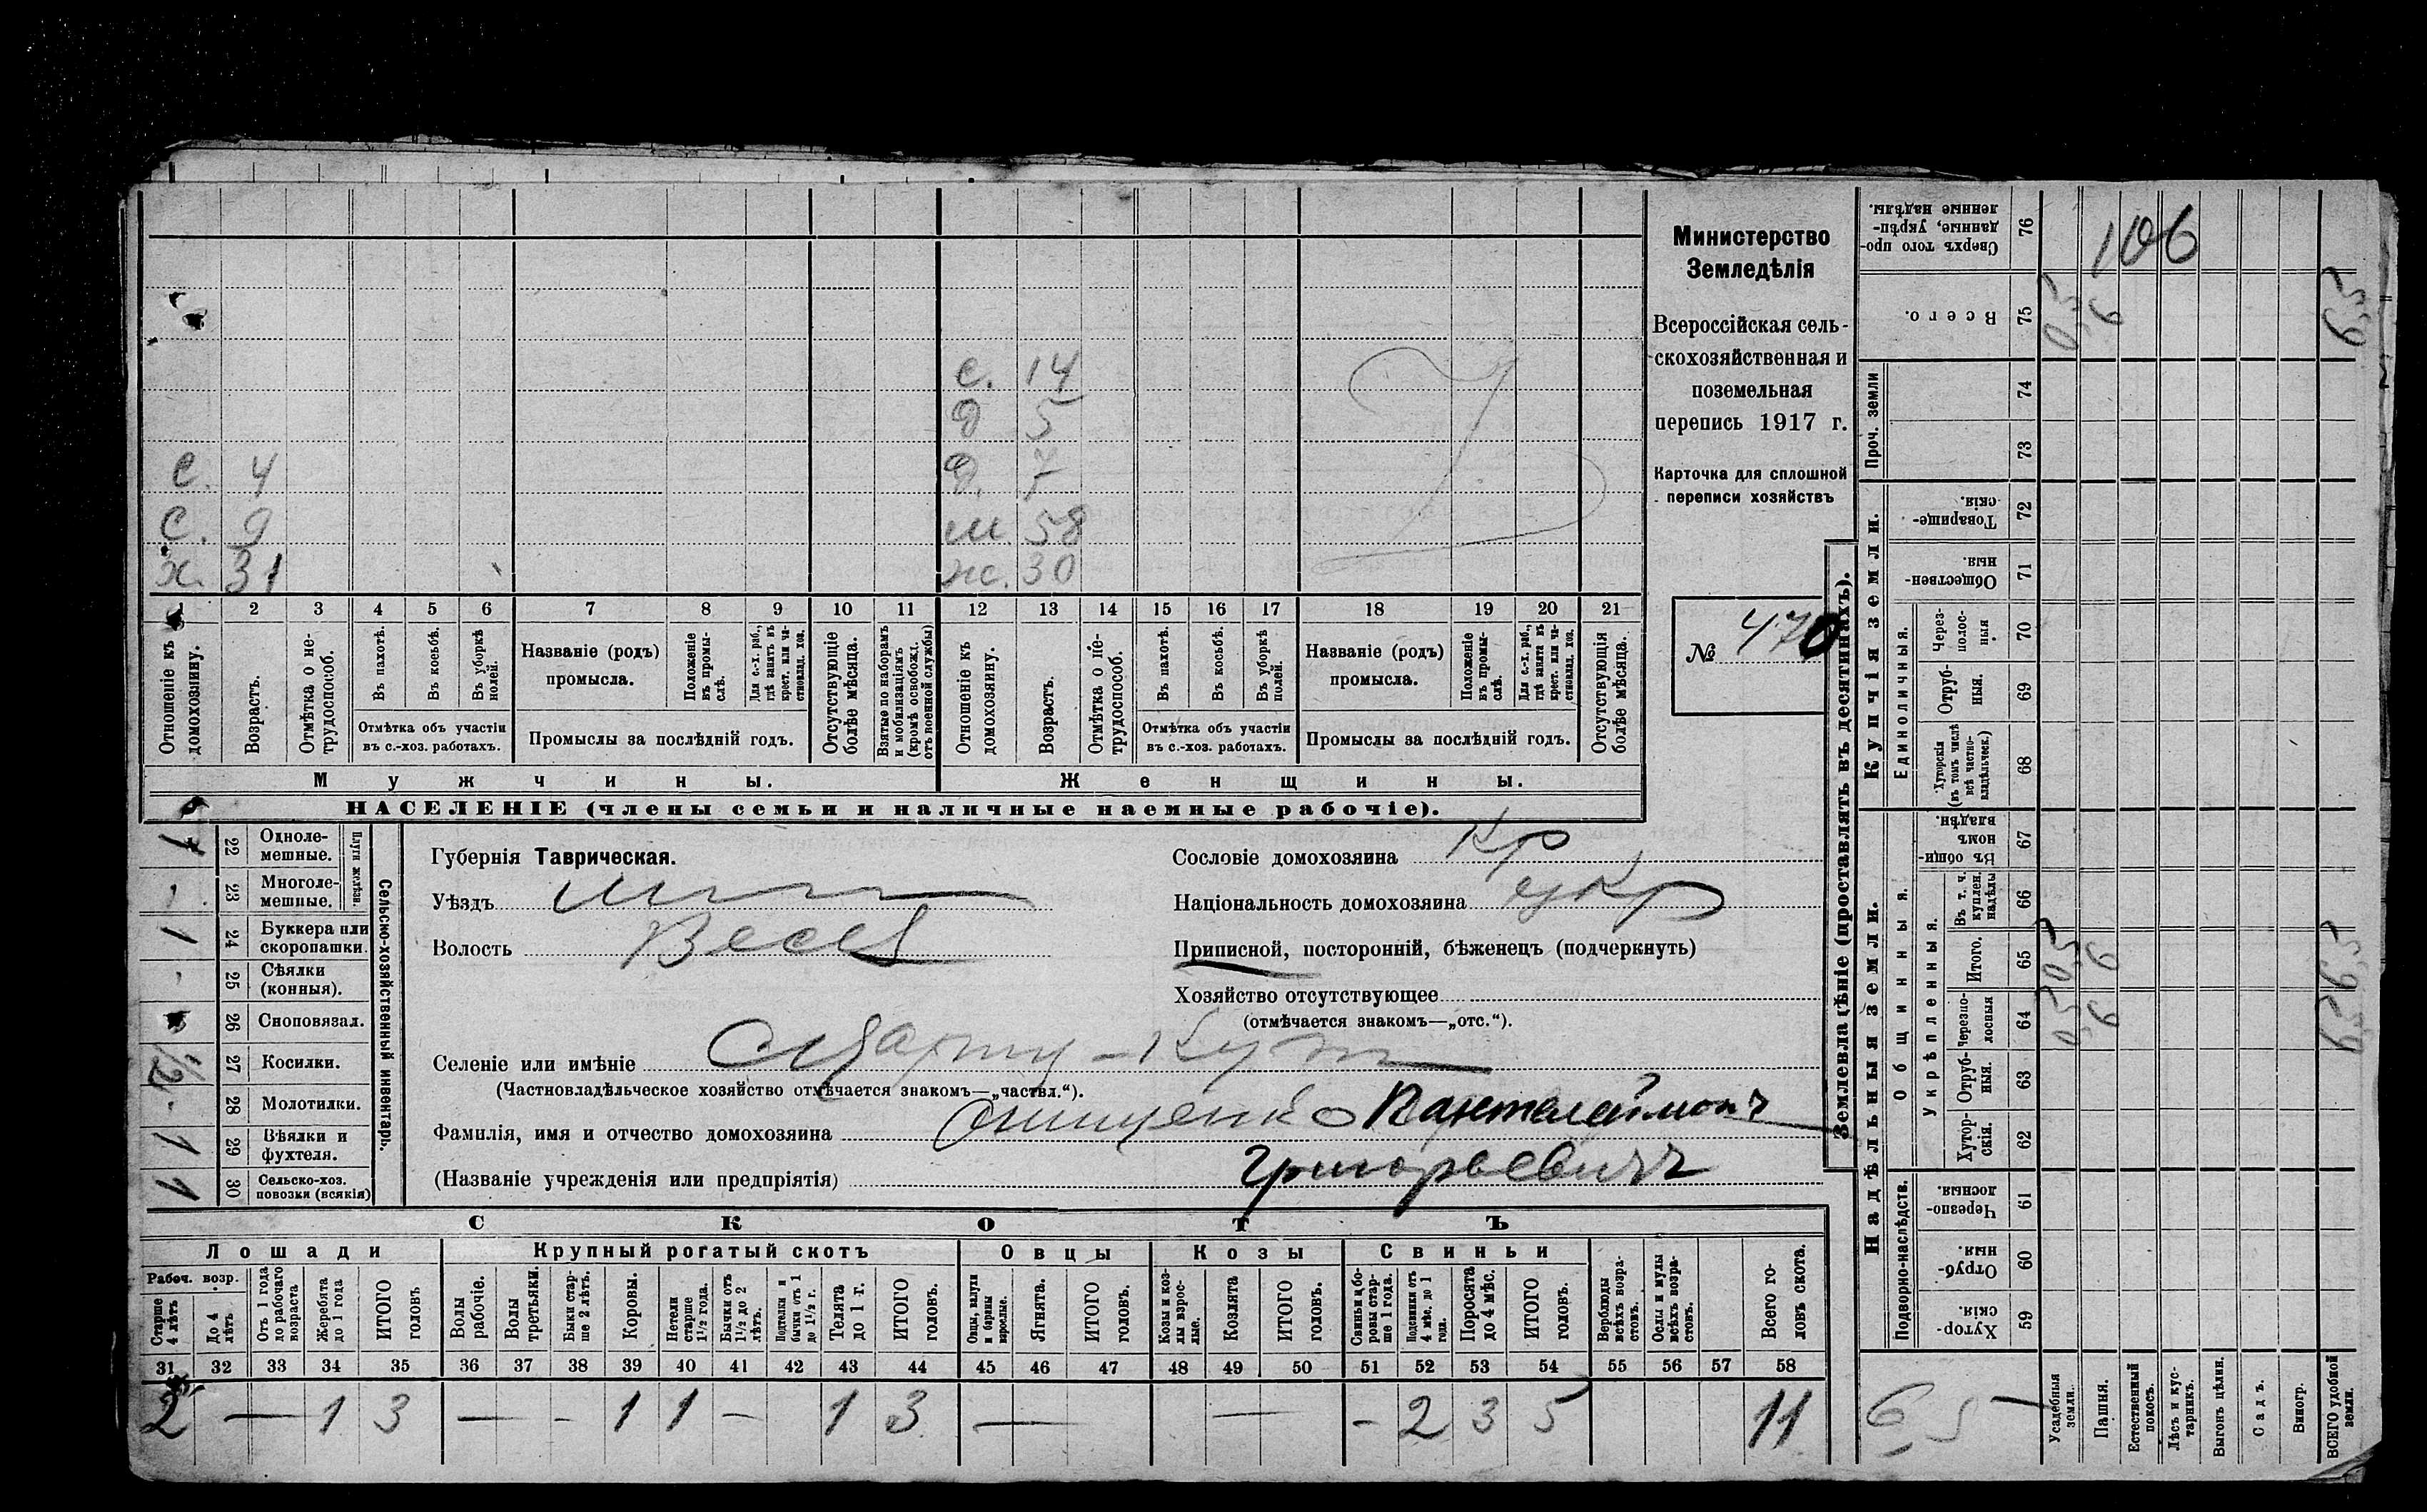 с. 14
д 5
с. 4 д.
с. 9 м. 58
х. 31 ж. 30
1 2 3 4 5 6 7 8 9 10 11 12 13 14 15 16 17 18 19 20 21
Отношеніе къ домохозяину.
Возрастъ.
Отмѣтка о не-трудоспособ.
Въ пахотѣ.
Въ косьбѣ.
Въ уборкѣ полей.
Отмѣтка объ участіи
въ с.-хоз. работахъ.
Названіе (родъ)
промысла.
Положеніе въ промы-слѣ.
Для с.-х. раб., гдѣ занятъ въ крест. или ча-стновлад. хоз.
Промыслы за послѣдній годъ.
Отсутствующіе болѣе мѣсяца.
Взятые по наборамъ и мобилизаціямъ (кромѣ освобожд. отъ военной службы)
Отношеніе къ домохозяину.
Возрастъ.
Отмѣтка о не-трудоспособ.
Въ пахотѣ.
Въ косьбѣ.
Въ уборкѣ полей.
Отмѣтка объ участіи
въ с.-хоз. работахъ.
Названіе (родъ)
промысла.
Положеніе въ промы-слѣ.
Для с.-х. раб., гдѣ занята въ крест. или ча-стновлад. хоз.
Промыслы за послѣдній годъ.
Отсутствующія болѣе мѣсяца.
Мужчины.
Женщины.
НАСЕЛЕНІЕ (члены семьи и наличные наемные рабочіе).
Министерство
Земледѣлія
Всероссійская сель-
скохозяйственная и
поземельная
перепись 1917 г.
Карточка для сплошной
переписи хозяйствъ
№ 470
Сельско-хозяйственный инвентарь.
Плуги желѣзн.
1 22 Одноле-мешные.
- 23 Многоле-мешные.
1 24 Буккера или скоропашки.
- 25 Сѣялки (конныя).
26 Сноповязал.
1/2 27 Косилки.
- 28 Молотилки.
1 29 Вѣялки и фухтеля.
1 30 Сельско-хоз. повозки (всякія)
Губернія Таврическая.
Уѣздъ
Волость Весел
Селеніе или имѣніе
(Частновладѣльческое хозяйство отмѣчается знакомъ—„частвл.“).
Фамилія, имя и отчество домохозяина Онищенко Пантелеймонъ
(Названіе учрежденія или предпріятія) Григорьевичъ
Сословіе домохозяина кр
Національность домохозяина укр
Приписной, посторонній, бѣженецъ (подчеркнуть)
Хозяйство отсутствующее
(отмѣчается знакомъ—„отс.“).
СКОТЪ
Лошади
Крупный рогатый скотъ
Овцы
Козы
Свиньи
Рабоч. возр.
Старше 4 лѣтъ
До 4 лѣтъ
Отъ 1 года до рабочаго возраста
Жеребята до 1 года
ИТОГО головъ
Волы рабочіе.
Волы третьяки.
Быки стар-ше 2 лѣтъ.
Коровы.
Нетели старше 1½ года.
Бычки отъ 1½ до 2 лѣтъ.
Подтелки и бычки отъ 1 до 1½ г.
Телята до 1 г.
ИТОГО головъ.
Овцы, валухи и бараны взрослые.
Ягнята.
ИТОГО головъ.
Козы и коз-лы взрос-лые.
Козлята
ИТОГО головъ.
Свиньи и бо-ровы стар-ше 1 года.
Подсвинки отъ 4 мѣс. до 1 года.
Поросята до 4 мѣс.
ИТОГО головъ.
Верблюды всѣхъ возра-стовъ.
Ослы и мулы всѣхъ возра-стовъ.
Всего го-ловъ скота.
31 32 33 34 35 36 37 38 39 40 41 42 43 44 45 46 47 48 49 50 51 52 53 54 55 56 57 58
2 — 1 3 — - 1 1 — 1 3 — — - 2 3 5 11
Землевладѣніе (проставлять въ десятинахъ).
Купчія земли.
Надѣльныя земли.
Сверхъ того про-данные, укрѣп-ленные надѣлы. 76
106
Всего. 75 0,5 6 6,5
Проч. земли
74
73
Товарище-скія. 72
Обществен-ныя. 71
Единоличныя.
Через-полос-ныя 70
Отруб-ныя. 69
Хуторскія (въ томъ числѣ всѣ частно-владѣльческ.) 68
Общинныя.
Въ общин-номъ владѣн. 67
Укрѣпленныя.
Въ т. ч. куплен. надѣлы 66
Итого. 65 0,5 6 6,5
Черезпо-лосныя 64 0,5 6 6,5
Отруб-ныя. 63
Хутор-скія. 62
Подворно-наслѣдств.
Черезпо-лосныя. 61
Отруб-ныя. 60
Хутор-скія. 59
6,5
Усадебныя земли.
Пашня.
Естественный покосъ.
Лѣсъ и кус-тарникъ.
Выгонъ цѣлин.
Садъ.
Виногр.
ВСЕГО удобной земли.